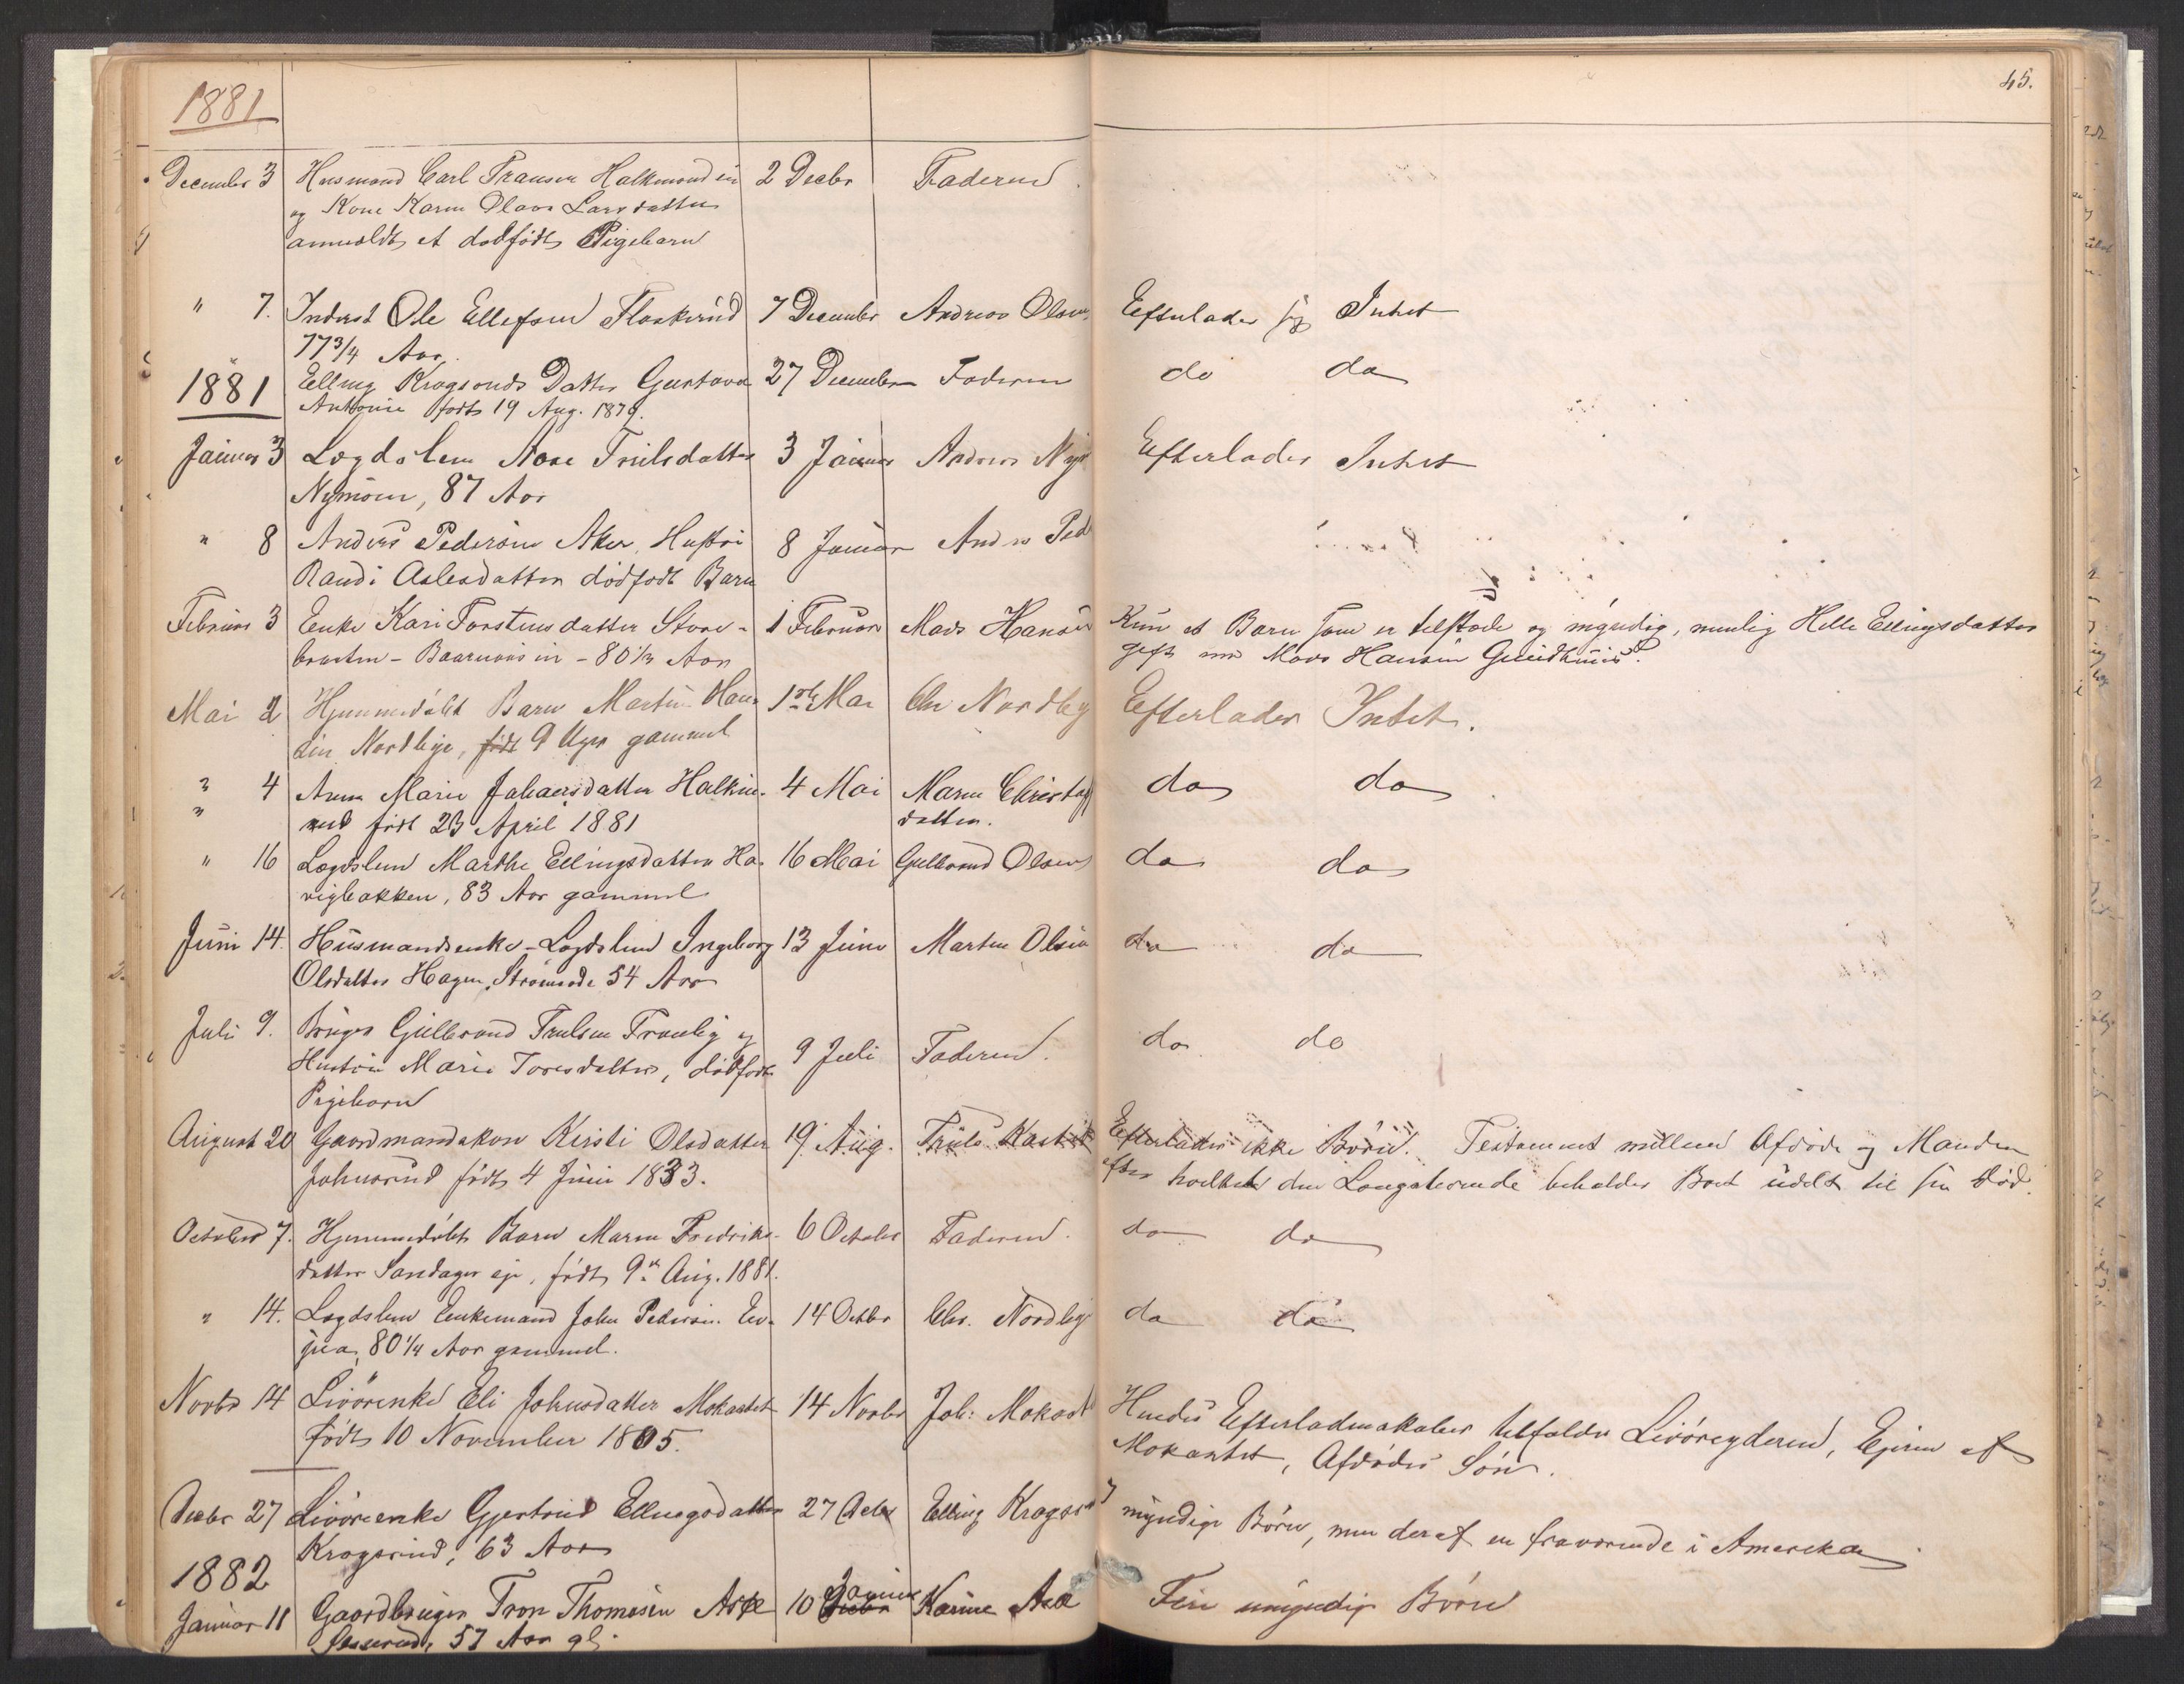 1881
45.
December 3 Husmand Carl Fransen Halkinrud ein 2 Decbr Faderen.
og Kone Karen Olava Larsdatter
anmeldt et dødfødt Pigebarn
" 7. Inderst Ole Ellefsen Flaskerud 7 December Andreas Olsen, Efterlader sig Intet
77 3/4 Aar.
1881 Elling Kragsruds Datter Gustava 27 December Faderen do do
Antonie født 19 Aug. 1879.
Januar 3 Lægdslem Aase Trulsdatter 3 Januar Andreas Efterlader Intet
Nymoen, 87 Aar
" 8 Anders Pedersen Aker, Hustru 8 Januar Anders Ped
Randi Aslesdatter dødfødt Barn
Februar 3 Enke Kari Torstensdatter Store- 1 Februar Mads Hansen Kun et Barn som er tilstede og myndig, nemlig Helle Ellingsdatter
braaten - - 80 1/2 Aar gift med Mads Hansen
Mai 2 Hjemmedøbt Barn Martin Han- 1ste Mai Chr Nordby Efterlader Intet.
sen Nordbye, født 9 Uger gammel
" 4 Anna Marie Johansdatter Halkin- 4 Mai Maren Christoff do do
" rud født 23 April 1881 datter.
" 16 Lægdslem Marthe Ellingsdatter Ha- 16 Mai Gulbrand Olsen do do
vigbakken, 83 Aar gammel
Juni 14. Husmandsenke - Lægdslem Ingeborg 13 Juni Martin Olsen do do
Olsdatter Hagen, Strømsode 54 Aar
Juli 9. Bruger Gulbrand Trulsen Tranby og 9 Juli Faderen. do do
Hustru Marie Toresdatter, dødfødt
Pigebarn
August 20 Gaardmandskone Kirsti Olsdatter 19 Aug. Truls Efterlader ikke Børn. Testament mellem Afdøde og Manden
Johnsrud født 4 Juni 1833. efter hvilket den Længstlevende beholder Boet udelt til sin Død.
October 7. Hjemmedøbt Barn Maren Fredriks- 6 October Faderen. do do
datter Sandager eje, født 9de Aug. 1881.
" 14. Lægdslem Enkemand John Pedersen En- 14 Octbr Chr. Nordby do do
jua, 80 1/4 Aar gammel.
Novbr 14 Livørenke Eli Johnsdatter Mokastet 14 Novbr Joh: Mokast Hendes Efterladenskaber tilfalder Livøreyderen, Ejeren af
født 10 November 1805. Mokastet, Afdødes Søn.
Decbr 27 Livørenke Gjertrud Ellingsdatter 27 Decbr Elling Kragsr 7 myndige Børn, men deraf en fraværende i Amerika
Kragsrud, 63 Aar
1882
Januar 11 Gaardbruger Tron Thomasen Aske 10 Januar Karine Ask Fire umyndige Børn
57 Aar gl.